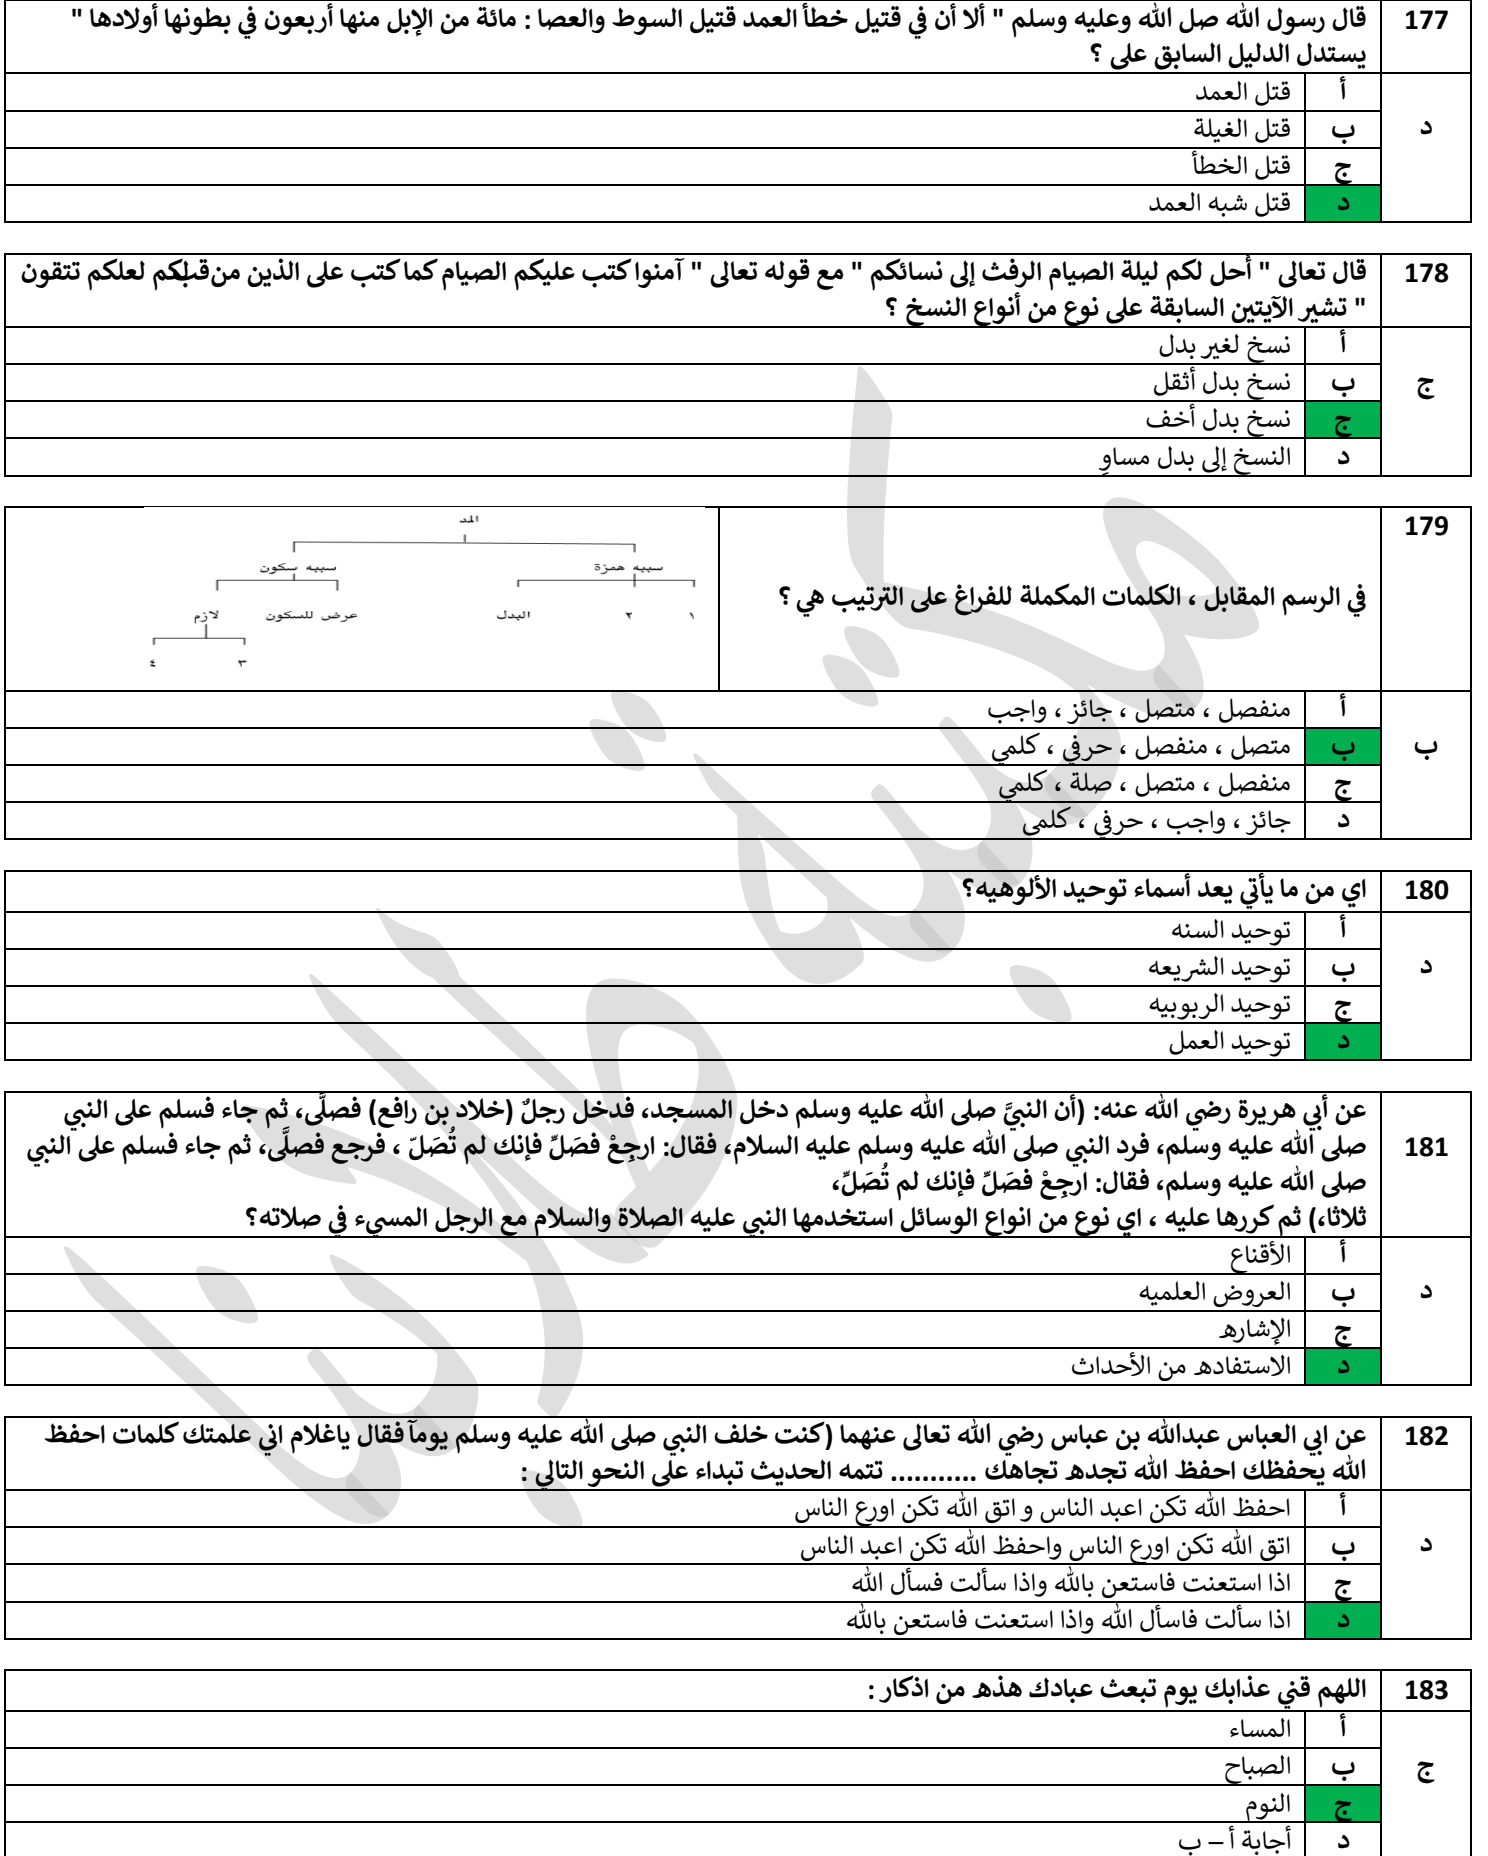 177
قال رسول الله صل الله وعليه وسلم " ألا أن في قتيل خطأ العمد قتيل السوط والعصا : مائة من الإبل منها أربعون في بطونها أولادها "
يستدل الدليل السابق على ؟
أ قتل العمد
د
ب قتل الغيلة
ج قتل الخطأ
د قتل شبه العمد
178
قال تعالى " أحل لكم ليلة الصيام الرفث إلى نسائكم " مع قوله تعالى " آمنوا كتب عليكم الصيام كما كتب على الذين من قبلكم لعلكم تتقون
" تشير الآيتين السابقة على نوع من أنواع النسخ ؟
أ نسخ لغير بدل
ج
ب نسخ بدل أثقل
ج نسخ بدل أخف
د النسخ إلى بدل مساوِ
179
في الرسم المقابل ، الكلمات المكملة للفراغ على الترتيب هي ؟
المد
سببه همزة سببه سكون
١ ٢ البدل عرض للسكون لازم
٣ ٤
أ منفصل ، متصل ، جائز ، واجب
ب
ب متصل ، منفصل ، حرفي ، كلمي
ج منفصل ، متصل ، صلة ، كلمي
د جائز ، واجب ، حرفي ، كلمى
180
اي من ما يأتي يعد أسماء توحيد الألوهيه؟
أ توحيد السنه
د
ب توحيد الشريعه
ج توحيد الربوبيه
د توحيد العمل
181
عن أبي هريرة رضي الله عنه: (أن النبيَّ صلى الله عليه وسلم دخل المسجد، فدخل رجلٌ (خلاد بن رافع) فصلَّى، ثم جاء فسلم على النبي
صلى الله عليه وسلم، فرد النبي صلى الله عليه وسلم عليه السلام، فقال: ارجِعْ فصَلِّ فإنك لم تُصَلّ ، فرجع فصلَّى، ثم جاء فسلم على النبي
صلى الله عليه وسلم، فقال: ارجِعْ فصَلِّ فإنك لم تُصَلِّ،
ثلاثا،) ثم كررها عليه ، اي نوع من انواع الوسائل استخدمها النبي عليه الصلاة والسلام مع الرجل المسيء في صلاته؟
أ الأقناع
د
ب العروض العلميه
ج الإشاره
د الاستفاده من الأحداث
182
عن ابي العباس عبدالله بن عباس رضي الله تعالى عنهما (كنت خلف النبي صلى الله عليه وسلم يومآ فقال ياغلام اني علمتك كلمات احفظ
الله يحفظك احفظ الله تجده تجاهك ........... تتمه الحديث تبداء على النحو التالي :
أ احفظ الله تكن اعبد الناس و اتق الله تكن اورع الناس
د
ب اتق الله تكن اورع الناس واحفظ الله تكن اعبد الناس
ج اذا استعنت فاستعن بالله واذا سألت فسأل الله
د اذا سألت فاسأل الله واذا استعنت فاستعن بالله
183
اللهم قني عذابك يوم تبعث عبادك هذه من اذكار :
أ المساء
ج
ب الصباح
ج النوم
د أجابة أ – ب
مكتبة طلابنا